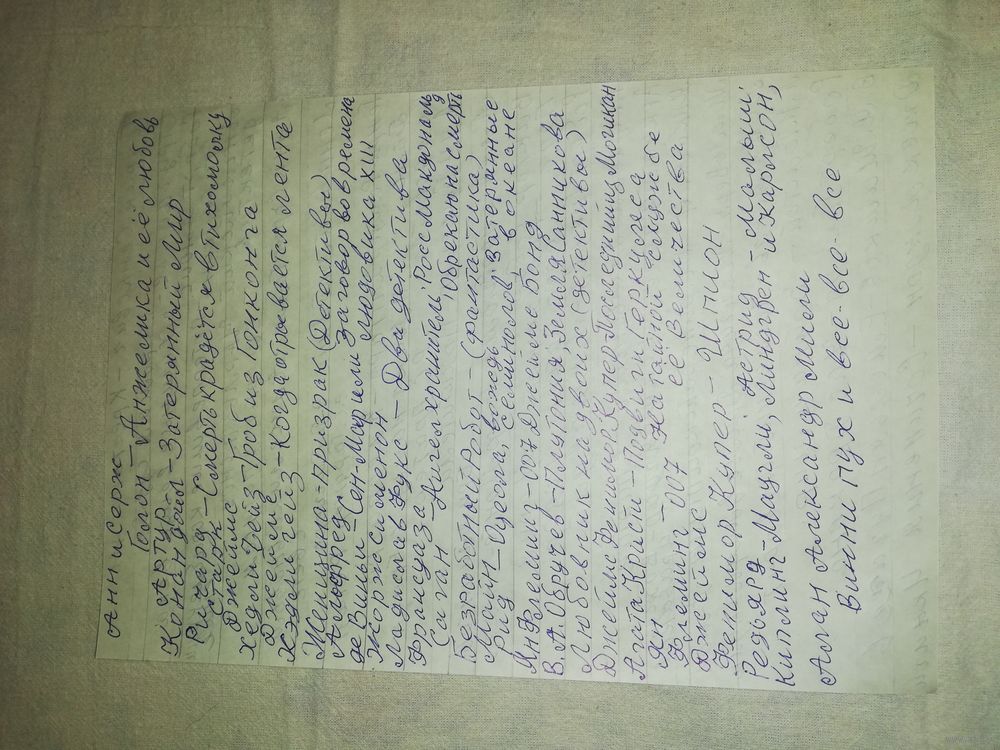 Анн и Серж
Голон – Анжелика и её любовь
Артур
Конан Дойл – Затерянный Мир
Ричард – Смерть крадётся в тихомолку
Старк
Джеймс
Хедли Чейз – Гроб из Гонконга
Джеймс
Хэдли Чейз – Когда прерывается лента
Женщина-призрак (Детективы)
Альфред
де Виньи – Сен-Мар или Заговор во времена
Людовика XIII
Жорж Сименон
Ладислав Фукс – Два детектива
Франсуаза
Саган – Ангел хранитель, Росс Макдональд
"Обрекаю на смерть"
Безработный Робот – (фантастика)
Майн – Оцеола, вождь Затерянные
Рид семинолов, в океане
Ян Флеминг – 007 Джеймс Бонд
В.А. Обручев – Плутония, Земля Санникова
Любовник на двоих (детективы)
Джеймс Фенимор Купер Последний из Могикан
Агата Кристи – Подвиги Геркулеса
Ян
Флеминг – 007 На тайной службе
её Величества
Джеймс
Фенимор Купер – Шпион
Редьярд Астрид
Киплинг – Маугли, Линдгрен – Малыш
и Карлсон,
Алан Александр Милн
Винни Пух и все-все-все